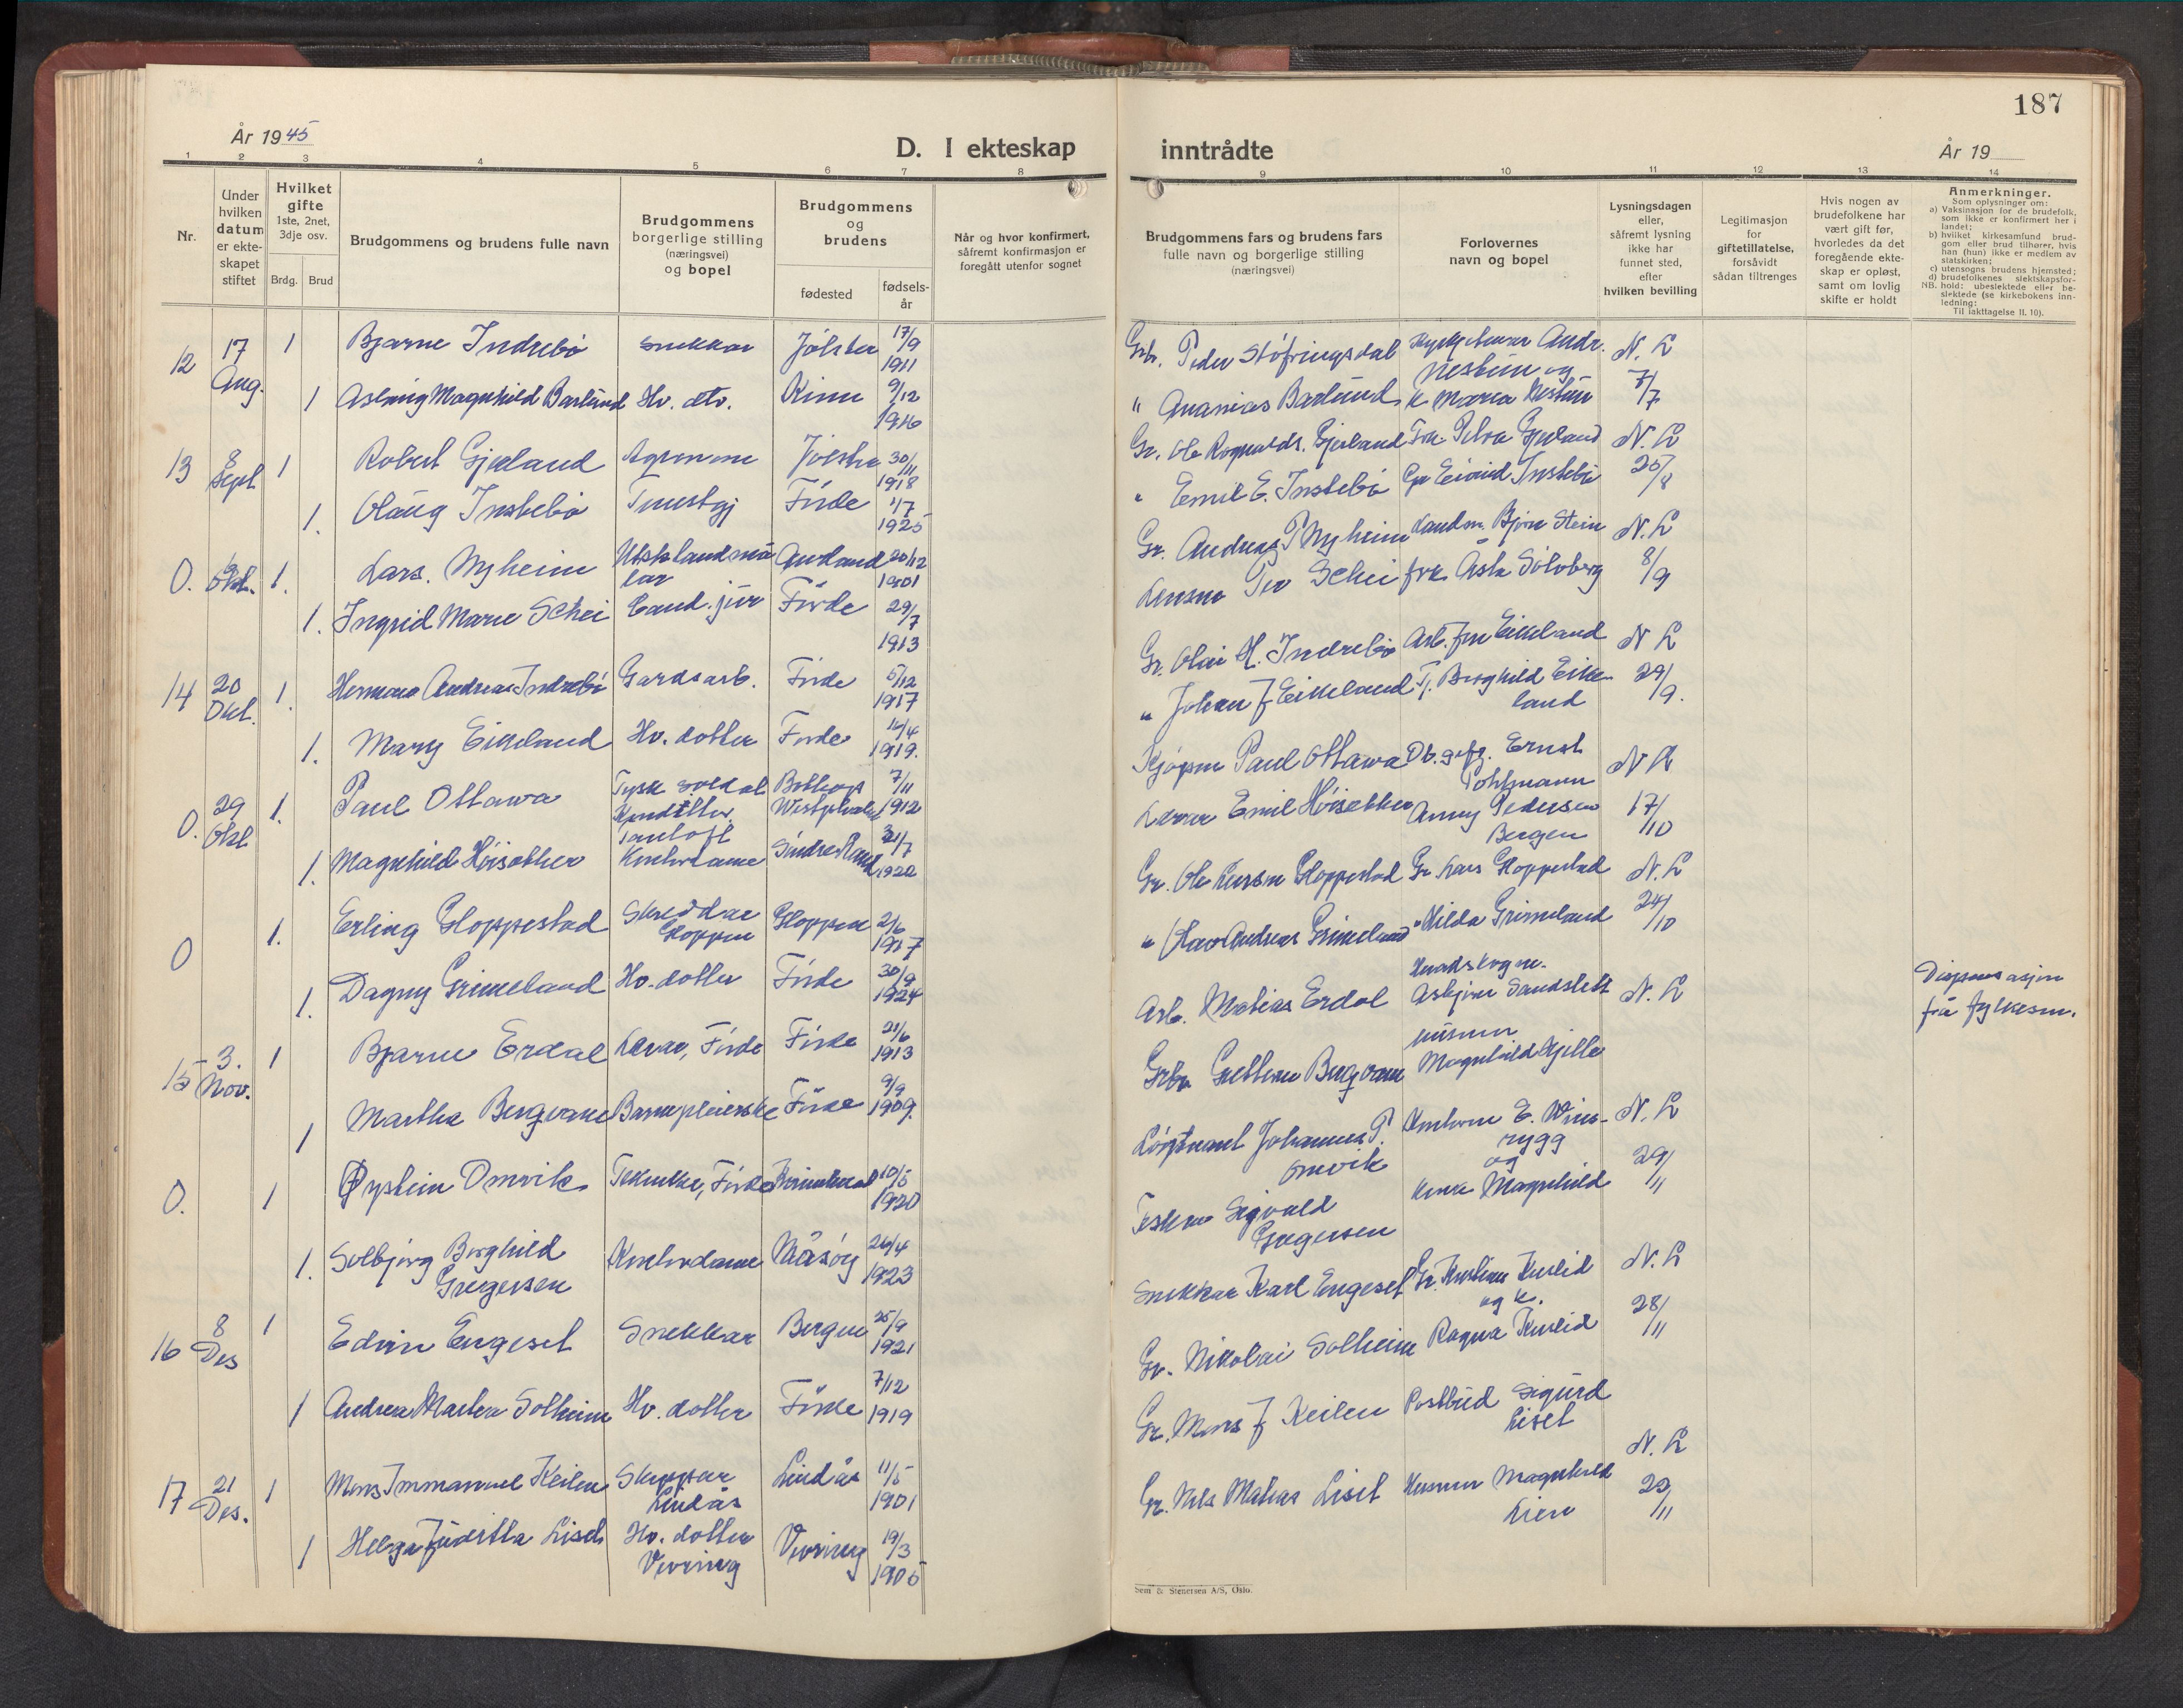 187
År 1945
D. I ekteskap inntrådte
År 19
1 2 3 4 5 6 7 8 9 10 11 12 13 14
Nr.
Under
hvilken
datum
er ekte-
skapet
stiftet
Hvilket
gifte
1ste, 2net,
3dje osv.
Brdg. Brud
Brudgommens og brudens fulle navn
Brudgommens
borgerlige stilling
(næringsvei)
og bopel
Brudgommens
og
brudens
fødested
fødsels-
år
Når og hvor konfirmert,
såfremt konfirmasjon er
foregått utenfor sognet
Brudgommens fars og brudens fars
fulle navn og borgerlige stilling
(næringsvei)
Forlovernes
navn og bopel
Lysningsdagen
eller,
såfremt lysning
ikke har
funnet sted,
efter
hvilken bevilling
Legitimasjon
for
giftetillatelse,
forsåvidt
sådan tiltrenges
Hvis nogen av
brudefolkene har
vært gift før,
hvorledes da det
foregående ekte-
skap er opløst,
samt om lovlig
skifte er holdt
Anmerkninger.
Som oplysninger om:
a) Vaksinasjon for de brudefolk,
som ikke er konfirmert her i
landet;
b) hvilket kirkesamfund brud-
gom eller brud tilhører, hvis
han (hun) ikke er medlem av
statskirken;
c) utensogns brudens hjemsted;
d) brudefolkenes slektskapsfor-
NB. hold: ubeslektede eller be-
slektede (se kirkebokens inn-
ledning:
Til iakttagelse II. 10).
12 17 Aug. 1 Bjarne Indrebø snekkar Jölster 17/9 1911 Gbr. Peder Støfringsdal Andr. N. L
1 Aslaug Magnhild Barlund Hv. dtr. Kinn 9/12 1916 " Ananias Barlund, k Maria 7/7
13 8 Sept 1 Robert Gjesland Agronom Jölster 30/11 1918 Gr. Ole Rognalds. Gjesland N. L
1. Olaug Instebø Førde 1/7 1925 " Emil E. Instebø Gr Eivind Instebø 25/8
0. Okt. 1. Lars. Nyheim Aurland 20/12 1901 Gr. Andreas P Nyheim Landm. Bjørn Stein N. L
1. Ingrid Marie Schei Cand. jur Førde 29/7 1913 Lensm Per Schei frk. Asta Solvberg 8/9
14 20 Okt. 1. Hermann Andreas Indrebø Gardsarb. Førde 5/12 1917 Gr. Olai H. Indrebø Arb. Eikeland N L
1. Mary Eikeland Hv. dotter Førde 14/4 1919. " Johan J Eikeland Borghild Eike-
land 29/9.
0. 29 Okt 1. Paul Ottawa Tysk soldat Bottrop
Westphalen 7/11 1912 Kjøpm Paul Ottawa Ob. gefr. Ernst
Pohlmann N L
1. Magnhild Høisether Kontordame Söndre Land 1922 Lærar Emil Høisether Anny Pedersen
Bergen 17/10
0 1. Erling Gloppestad Skreddar
Gloppen Gloppen 2/6 1917 Gr. Ole Larsen Gloppestad Gr Lars Gloppestad N. L
1. Dagny Grimeland Hv. dotter Førde 30/9 1924 " Olav Andreas Grimeland " Hilda Grimeland 24/10
15 3. Nov. 1 Bjarne Erdal Lærar, Førde Førde 21/6 1913 Arb. Matias Erdal Asbjørn Sandslett N. L
Dispensasjon
frå fylkesm.
1 Martha Bergvam Barnepleierske Førde 9/9 1909. Gbr Bergvam Magnhild Hjelle
0. 1 Øystein Omvik Tekniker, Førde Kvinnherad 10/5 1920 Løytnant Johannes P.
Omvik E. Wins-
rygg
og N. L
1. Solbjørg Borghild
Gregersen Kontordame Måsøy 24/4 1923 Sigvald
Gregersen Magnhild 29/11
16 8 Des 1 Edvin Engeset Snekkar Bergen 25/9 1921 Snekkar Karl Engeset Gr. Kristian Kuslid
og k. N. L
1 Andrea Martea Solheim Hv. dotter Førde 7/12 1919 Gr. Nikolai Solheim Ragna Kuslid 28/11
17 21 Des. 1 Mons Immanuel Keilen Skreppar
Lindås Lindås 11/5 1901 Gr. Mons J Keilen Postbud Sigurd
Liset N. L
1 Helga Juditha Liset Hv. dotter
Vevring Vevring 19/3 1905 Gr. Nils Matias Liset Magnhild
Lien 29/11
Sem & Stenersen A/S, Oslo.